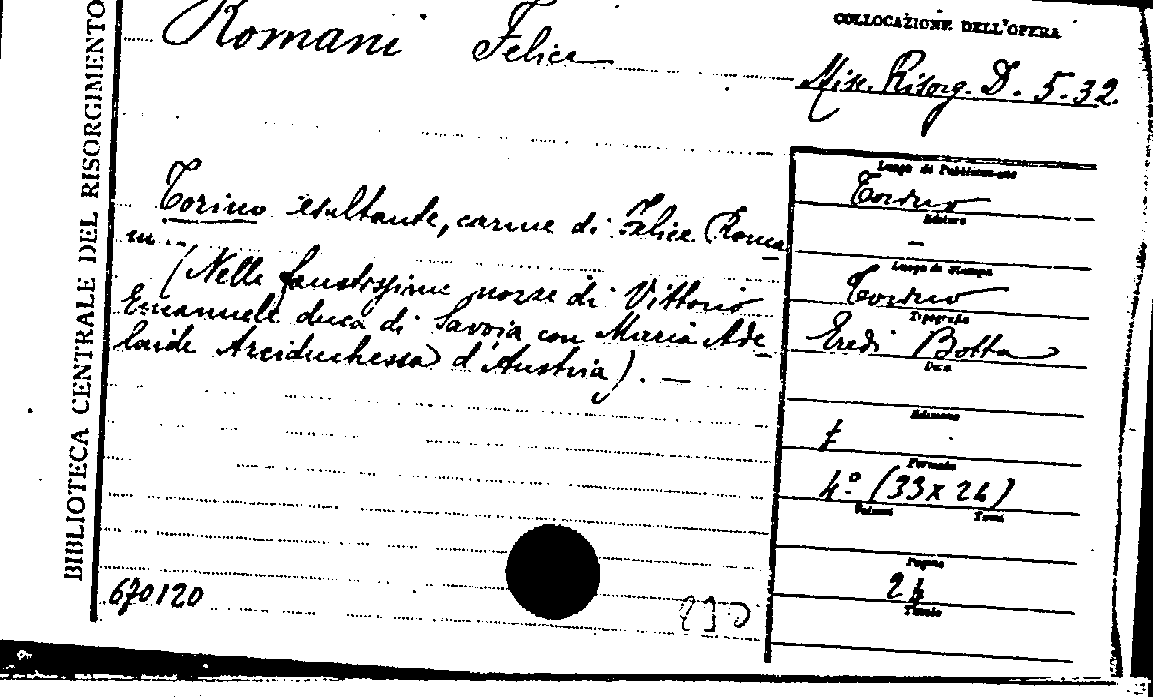 BIBLIOTECA CENTRALE DEL RISORGIMENTO
Romani Felice
COLLOCAZIONE DELL'OPERA
Misc. Risorg. D. 5.32
Torino esultante, carme di Felice Roma
ni..
(Nelle faustissime nozze di Vittorio
Emanuele duca di Savoia con Maria Ade
laide Arciduchessa d'Austria). —
Luogo di Pubblicazione
Torino
Editore
—
Luogo di Stampa
Torino
Tipografia
Eredi Botta
Data
Edizione
Formato
4º (33x24)
Volume Tomo
Pagine
24
Tavole
670120